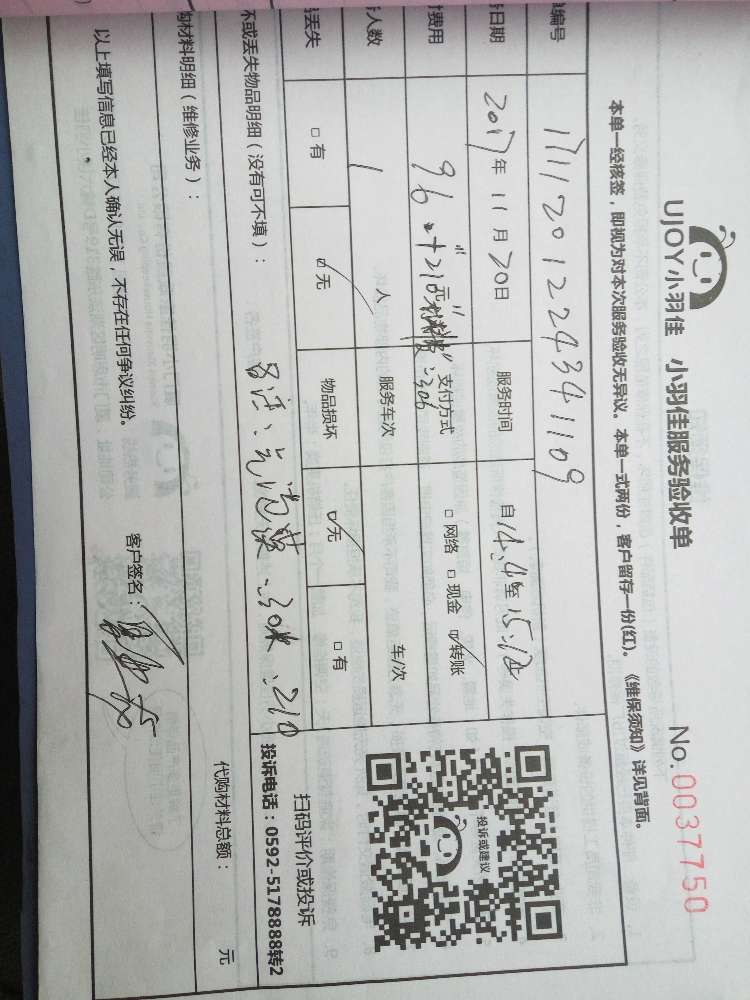 UJOY小羽佳 小羽佳服务验收单
No.0037750
本单一经核签，即视为对本次服务验收无异议。本单一式两份，客户留存一份(红)。《维保须知》详见背面。
编号 1711201224341109
日期 2017年11月20日 服务时间 自14.4至15.12
费用 96.+210元 材料费 :306 支付方式 □网络 □现金 ☑转账
人数 1 人 服务车次 车/次
丢失 □有 ☑无 物品损坏 ☑无 □有
坏或丢失物品明细（没有可不填）：
30米、210
购材料明细（维修业务）：
代购材料总额： 元
以上填写信息已经本人确认无误，不存在任何争议纠纷。
客户签名：
投诉或建议
扫码评价或投诉
投诉电话：0592-5178888转2